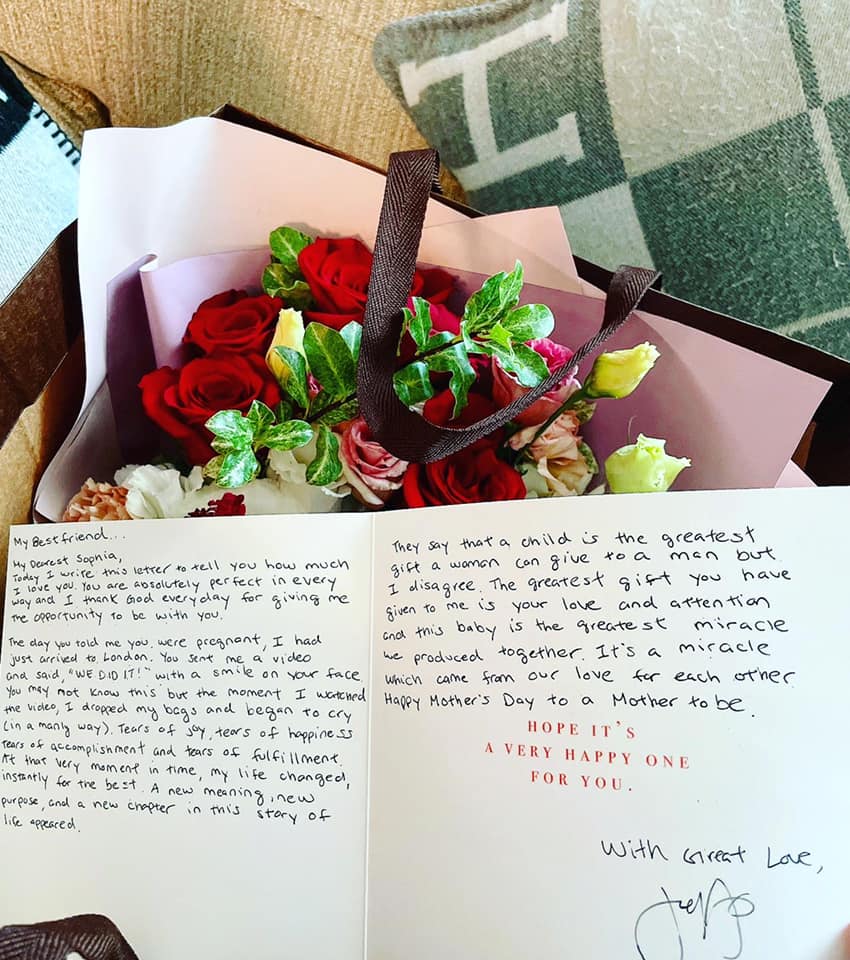 H
My Best friend...
My Dearest Sophia,
Today I write this letter to tell you how much
I love you. You are absolutely perfect in every
way and I thank God everyday for giving me
the opportunity to be with you.
The day you told me you were pregnant, I had
just arrived to London. You sent me a video
and said, "WE DID IT!" with a smile on your face.
You may not know this but the moment I watched
the video, I dropped my bags and began to cry
(in a manly way). Tears of joy, tears of happiness
tears of accomplishment and tears of fulfillment.
At that very moment in time, my life changed,
instantly for the best. A new meaning, new
purpose, and a new chapter in this story of
life appeared.
They say that a child is the greatest
gift a woman can give to a man but
I disagree. The greatest gift you have
given to me is your love and attention
and this baby is the greatest miracle
we produced together. It's a miracle
which came from our love for each other.
Happy Mother's Day to a Mother to be.
HOPE IT'S
A VERY HAPPY ONE
FOR YOU.
With Great Love,